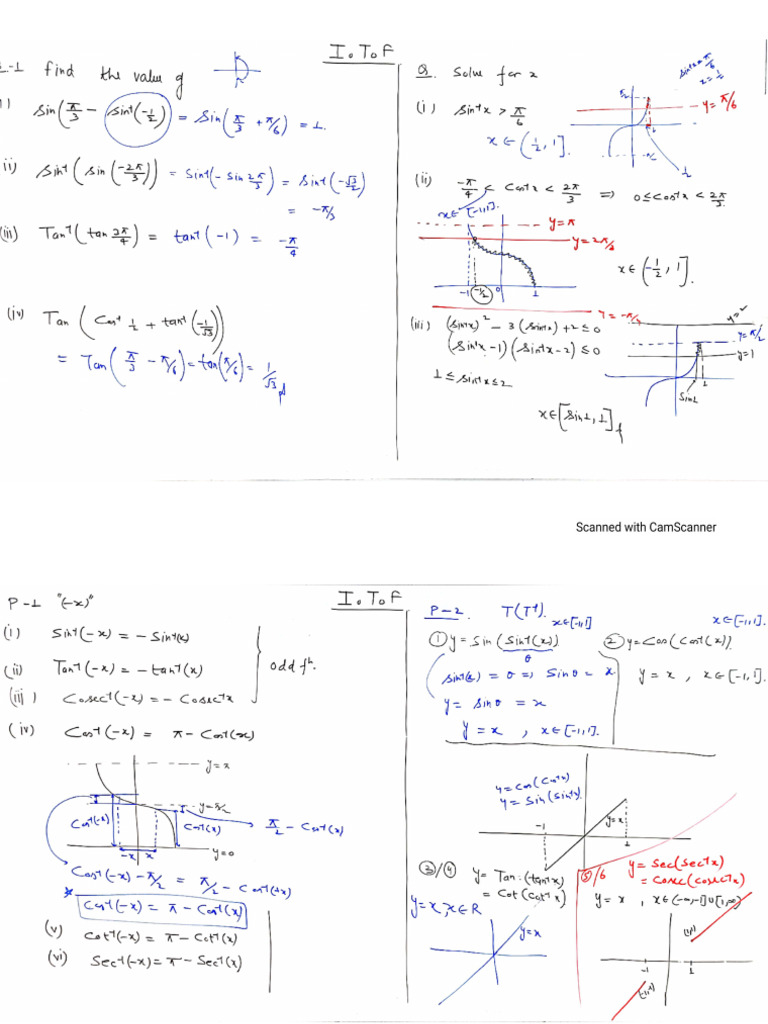 I.T.F
Q-1 find the value of
i) sin(π/3 - sin⁻¹(-1/2)) = sin(π/3 + π/6) = 1.
ii) sin⁻¹(sin(-2π/3)) = sin⁻¹(-sin 2π/3) = sin⁻¹(-√3/2)
= -π/3
(iii) Tan⁻¹(tan 3π/4) = tan⁻¹(-1) = -π/4
(iv) Tan(cos⁻¹ 1/2 + tan⁻¹(-1/√3))
= Tan(π/3 - π/6) = tan(π/6) = 1/√3
Q. Solve for x
sin⁻¹x = π/6
x = 1/2
(i) sin⁻¹x > π/6
x ∈ (1/2, 1].
y = π/6
1/2
(ii) -π/4 < cos⁻¹x < 2π/3 ⇒ 0 ≤ cos⁻¹x < 2π/3.
x ∈ [-1,1].
y = π
y = 2π/3
x ∈ (-1/2, 1].
-1 -1/2 0 1
y = -π/4
(iii) (sin⁻¹x)² - 3(sin⁻¹x) + 2 ≤ 0
(sin⁻¹x - 1)(sin⁻¹x - 2) ≤ 0
1 ≤ sin⁻¹x ≤ 2
y = π/2
y = 1
sin1 1
x ∈ [sin1, 1]
Scanned with CamScanner
I.T.F
P-1 "(-x)"
(i) sin⁻¹(-x) = - sin⁻¹(x)
(ii) Tan⁻¹(-x) = - tan⁻¹(x)
(iii) Cosec⁻¹(-x) = - Cosec⁻¹x
odd fⁿ.
(iv) Cos⁻¹(-x) = π - Cos⁻¹(x)
y = π
y = π/2
Cos⁻¹(-x) Cos⁻¹(x) π/2 - Cos⁻¹(x)
-x x y = 0
Cos⁻¹(-x) - π/2 = π/2 - Cos⁻¹(+x)
* Cos⁻¹(-x) = π - Cos⁻¹(x)
(v) Cot⁻¹(-x) = π - Cot⁻¹(x)
(vi) Sec⁻¹(-x) = π - Sec⁻¹(x)
P-2. T(T⁻¹).
x ∈ [-1,1]
① y = Sin(Sin⁻¹(x))
θ
sin⁻¹(x) = θ ⇒ Sinθ = x
y = sinθ = x
y = x , x ∈ [-1,1].
x ∈ [-1,1].
② y = Cos(Cos⁻¹(x)).
y = x , x ∈ [-1,1].
y = Cos(Cos⁻¹x)
y = Sin(Sin⁻¹x)
y = x
-1 1
③/④ y = Tan(tan⁻¹x)
= Cot(Cot⁻¹x)
y = x, x ∈ R
y = x
⑤/6 y = Sec(Sec⁻¹x)
= Cosec(Cosec⁻¹x)
y = x , x ∈ (-∞,-1] ∪ [1,∞)
(1,1)
-1 1
(-1,-1)